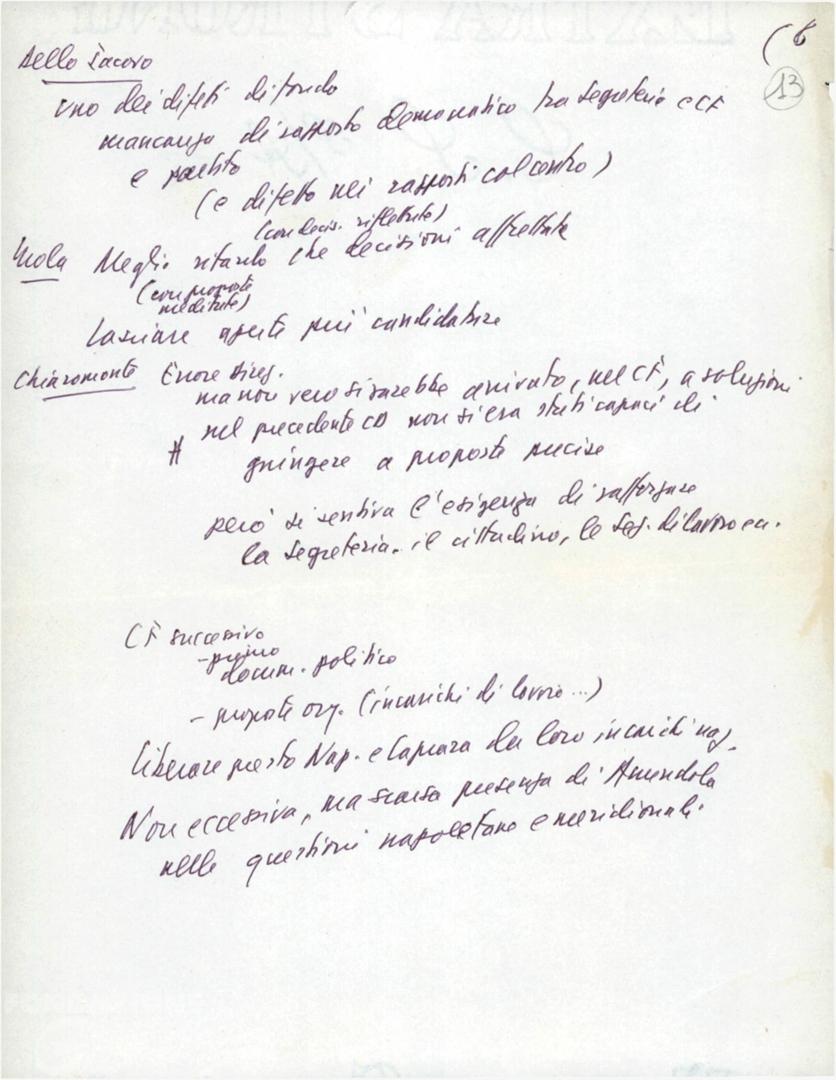 (6
13
Dello Iacovo
uno dei difetti di fondo
mancanza di rapporto democratico tra segreteria e CF
e partito
(e difetto nei rapporti col centro)
(con decis. riflettute)
Mola Meglio ritardo che decisioni affrettate
(con proposte
meditate)
Lasciare aperte più candidature
Chiaromonte Errore Direz.
ma non vero si sarebbe arrivato, nel CF, a soluzioni
nel precedente CD non si era stati capaci di
giungere a proposte precise
però si sentiva l'esigenza di rafforzare
la segreteria. il cittadino, le sez. di lavoro ecc.
CF successivo
- primo
docum. politico
- proposte org. (incarichi di lavoro ...)
Liberare presto Nap. e Caprara da loro incarichi naz.
Non eccessiva, ma scarsa presenza di Amendola
nelle questioni napoletane e meridionali.